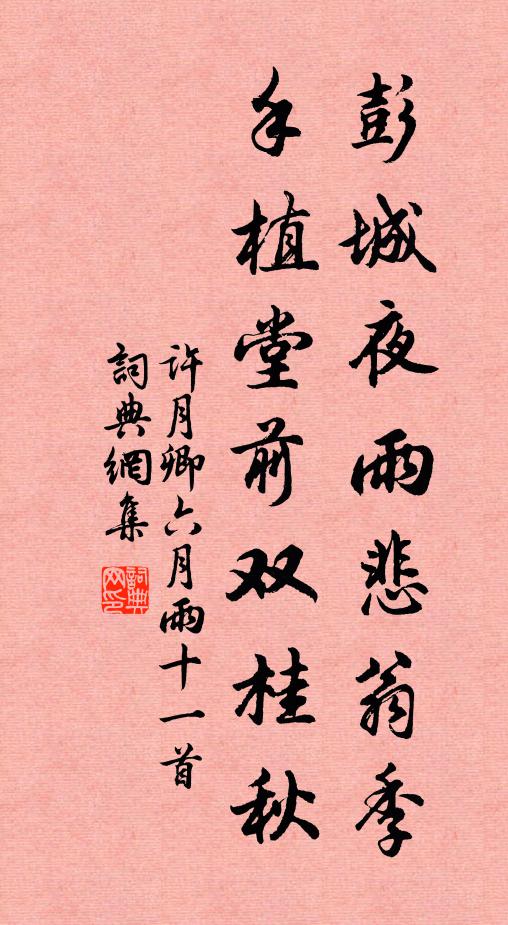 彭城夜雨悲翁季
手植堂前双桂秋
許月卿六月雨十一首
詞典網集
詞典
网印